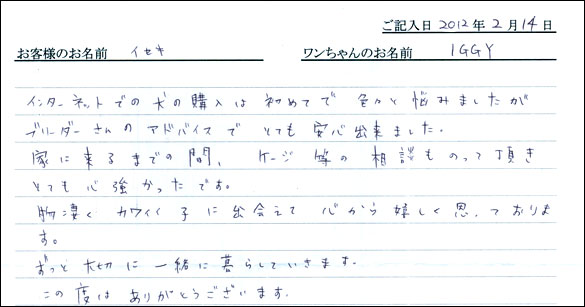 ご記入日 2012年2月14日
お客様のお名前 イセキ ワンちゃんのお名前 IGGY
インターネットでの犬の購入は初めてで色々と悩みましたが
ブリーダーさんのアドバイスでとても安心出来ました.
家に来るまでの間、ケージ等の相談ものって頂き
とても心強かったです。
物凄くカワイイ子に出会えて心から嬉しく思っておりま
す。
ずっと大切に一緒に暮らしていきます.
この度はありがとうございます.